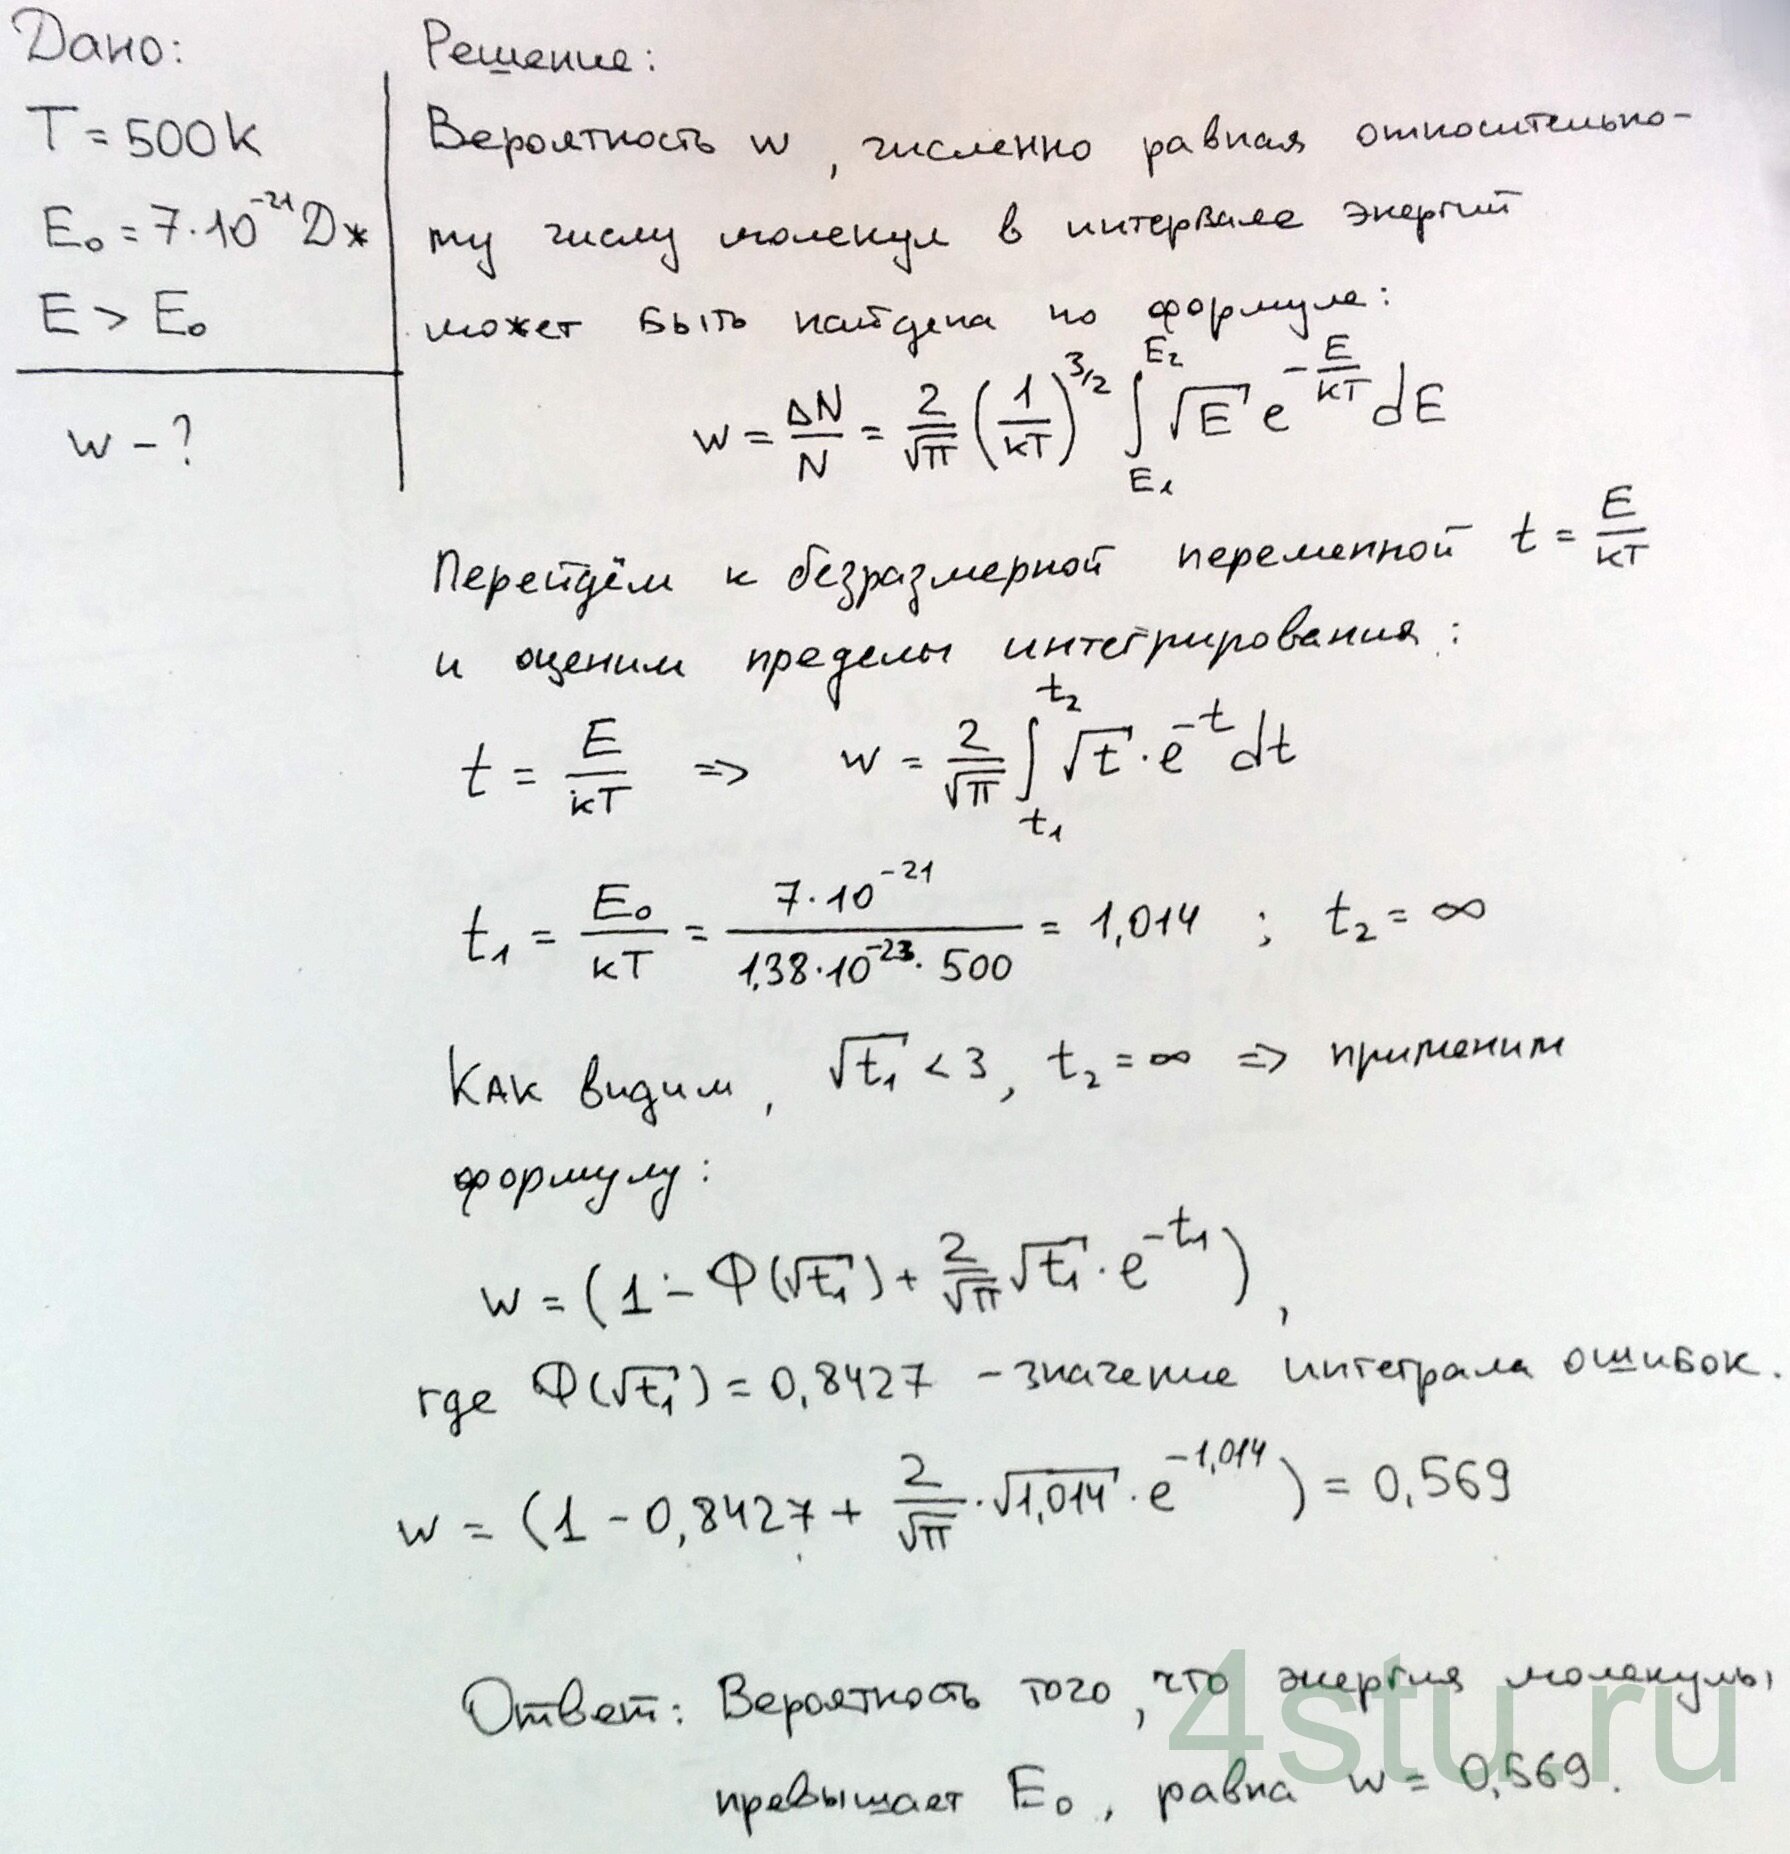 Дано:
T = 500 К
E₀ = 7·10⁻²¹ Дж
E > E₀
w - ?
Решение:
Вероятность w, численно равная относительно-
му числу молекул в интервале энергий
может быть найдена по формуле:
w = ΔN/N = 2/√π (1/кТ)^(3/2) ∫_{E₁}^{E₂} √E e^(-E/кТ) dE
Перейдём к безразмерной переменной t = E/кТ
и оценим пределы интегрирования:
t = E/кТ => w = 2/√π ∫_{t₁}^{t₂} √t · e^(-t) dt
t₁ = E₀/кТ = 7·10⁻²¹/(1,38·10⁻²³· 500) = 1,014 ; t₂ = ∞
Как видим, √t₁ < 3, t₂ = ∞ => применим
формулу:
w = (1 - Φ(√t₁) + 2/√π √t₁ · e^(-t₁)),
где Φ(√t₁) = 0,8427 - значение интеграла ошибок.
w = (1 - 0,8427 + 2/√π · √1,014 · e^(-1,014)) = 0,569
Ответ: Вероятность того, что энергия молекулы
превышает E₀, равна w = 0,569.
4stu.ru